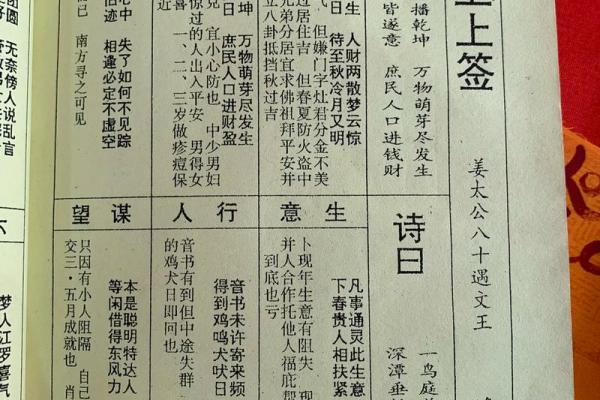 上签
姜太公八十遇文王
播乾坤 万物萌芽尽发生
皆遂意 庶民人口进钱财
生 人财两散梦云惊
日 待至秋冷月又明
但嫌门字灶君分金不美
过居住吉 但春夏防火盗中
兄弟分居宜求佛祖拜平安并
立八卦抵挡秋过吉
坤 万物萌芽尽发生
日 庶民人口进财盈
宜小心防也 中少男妇
惊过的人出入平安 男得女
近 一、二、三岁做疹痘保
心中 失了如何不见踪
旧迹 相逢必定不虚空
南方寻之可见
团圆 无奈傍人说乱言
诗曰
一鸟庭
深潭垂
生意
凡事通灵此生意
下春贵人相扶紧
卜现年生意有阻失 现
并人合作托他人福庇帮
到底也亏
行人
音书未许寄来频
得到鸡鸣犬吠日
音书有到但中途失群
的鸡犬日即回也
谋望
本是聪明特达人
等闲借得东风力
只因有小人阻隔 自己
交三·五月成就也 肖
梦人红罗喜气